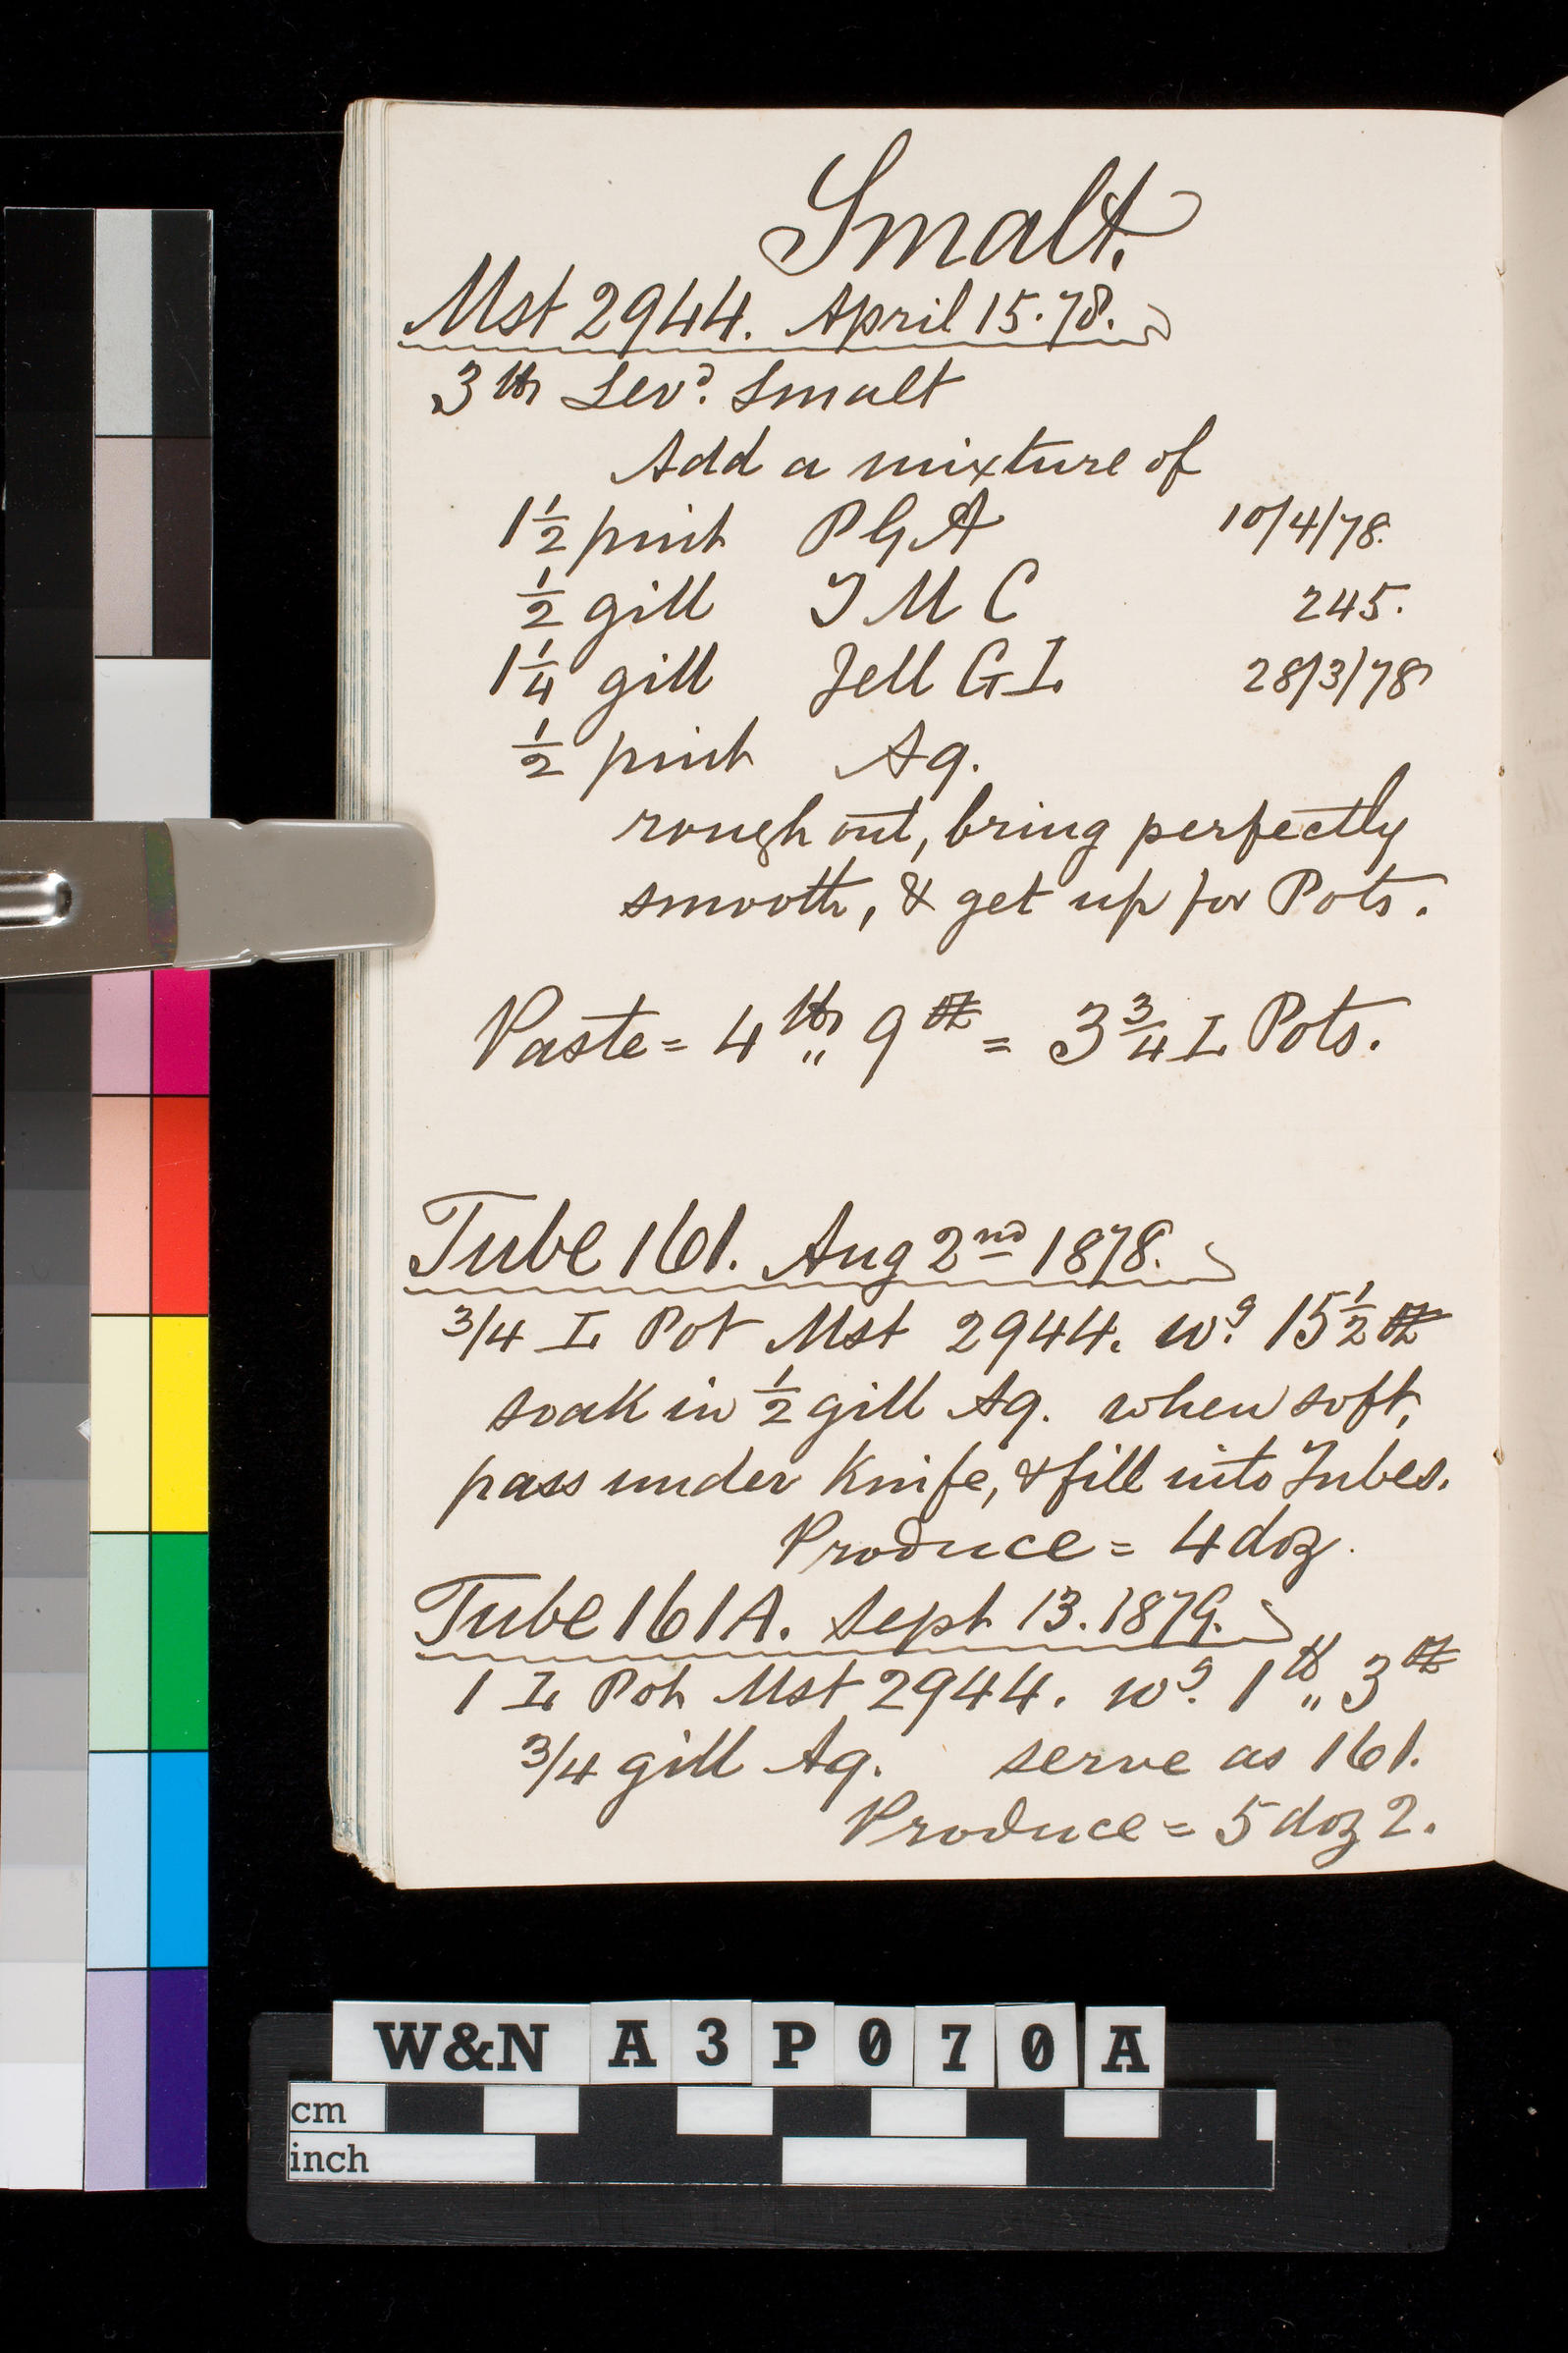 Smalt.
Mst 2944. April 15.78.
3 lb Levd. Smalt
Add a mixture of
1½ pint PGA 10/4/78.
½ gill TMC 245.
1¼ gill Jell GL 28/3/78
½ pint Aq.
rough out, bring perfectly
smooth, & get up for Pots.
Paste = 4 lb „ 9 oz = 3¾ L Pots.
Tube 161. Aug 2nd 1878.
3/4 L Pot Mst 2944. wg. 15½ oz
soak in ½ gill Aq. when soft,
pass under Knife, & fill into Tubes.
Produce = 4 doz.
Tube 161A. Sept 13. 1879.
1 L Pot Mst 2944. wg. 1 lb „ 3 oz
3/4 gill Aq. serve as 161.
Produce = 5 doz 2.
W&N A3P070A
cm
inch